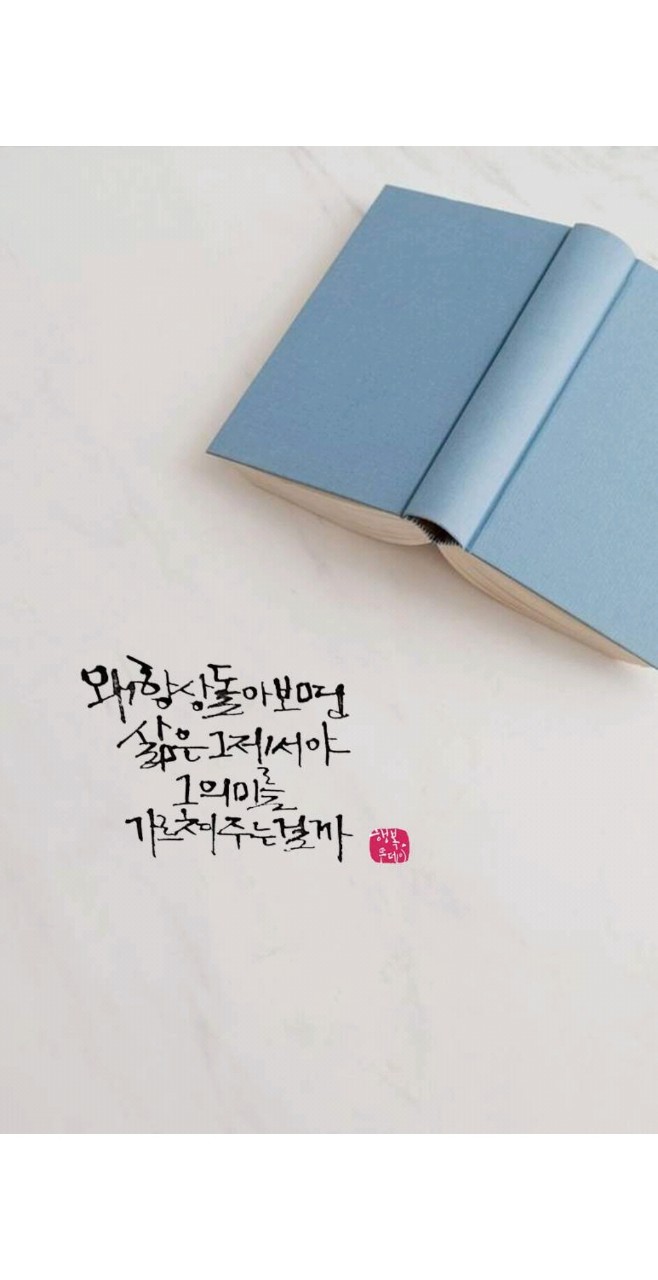 왜 항상 돌아보면
삶은 그제서야
그 의미를
가르쳐 주는 걸까
행복
우데이